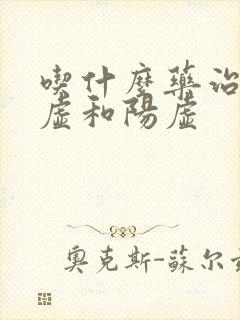 喫什麼藥治
虛和陽虛
奧克斯-蘇尔